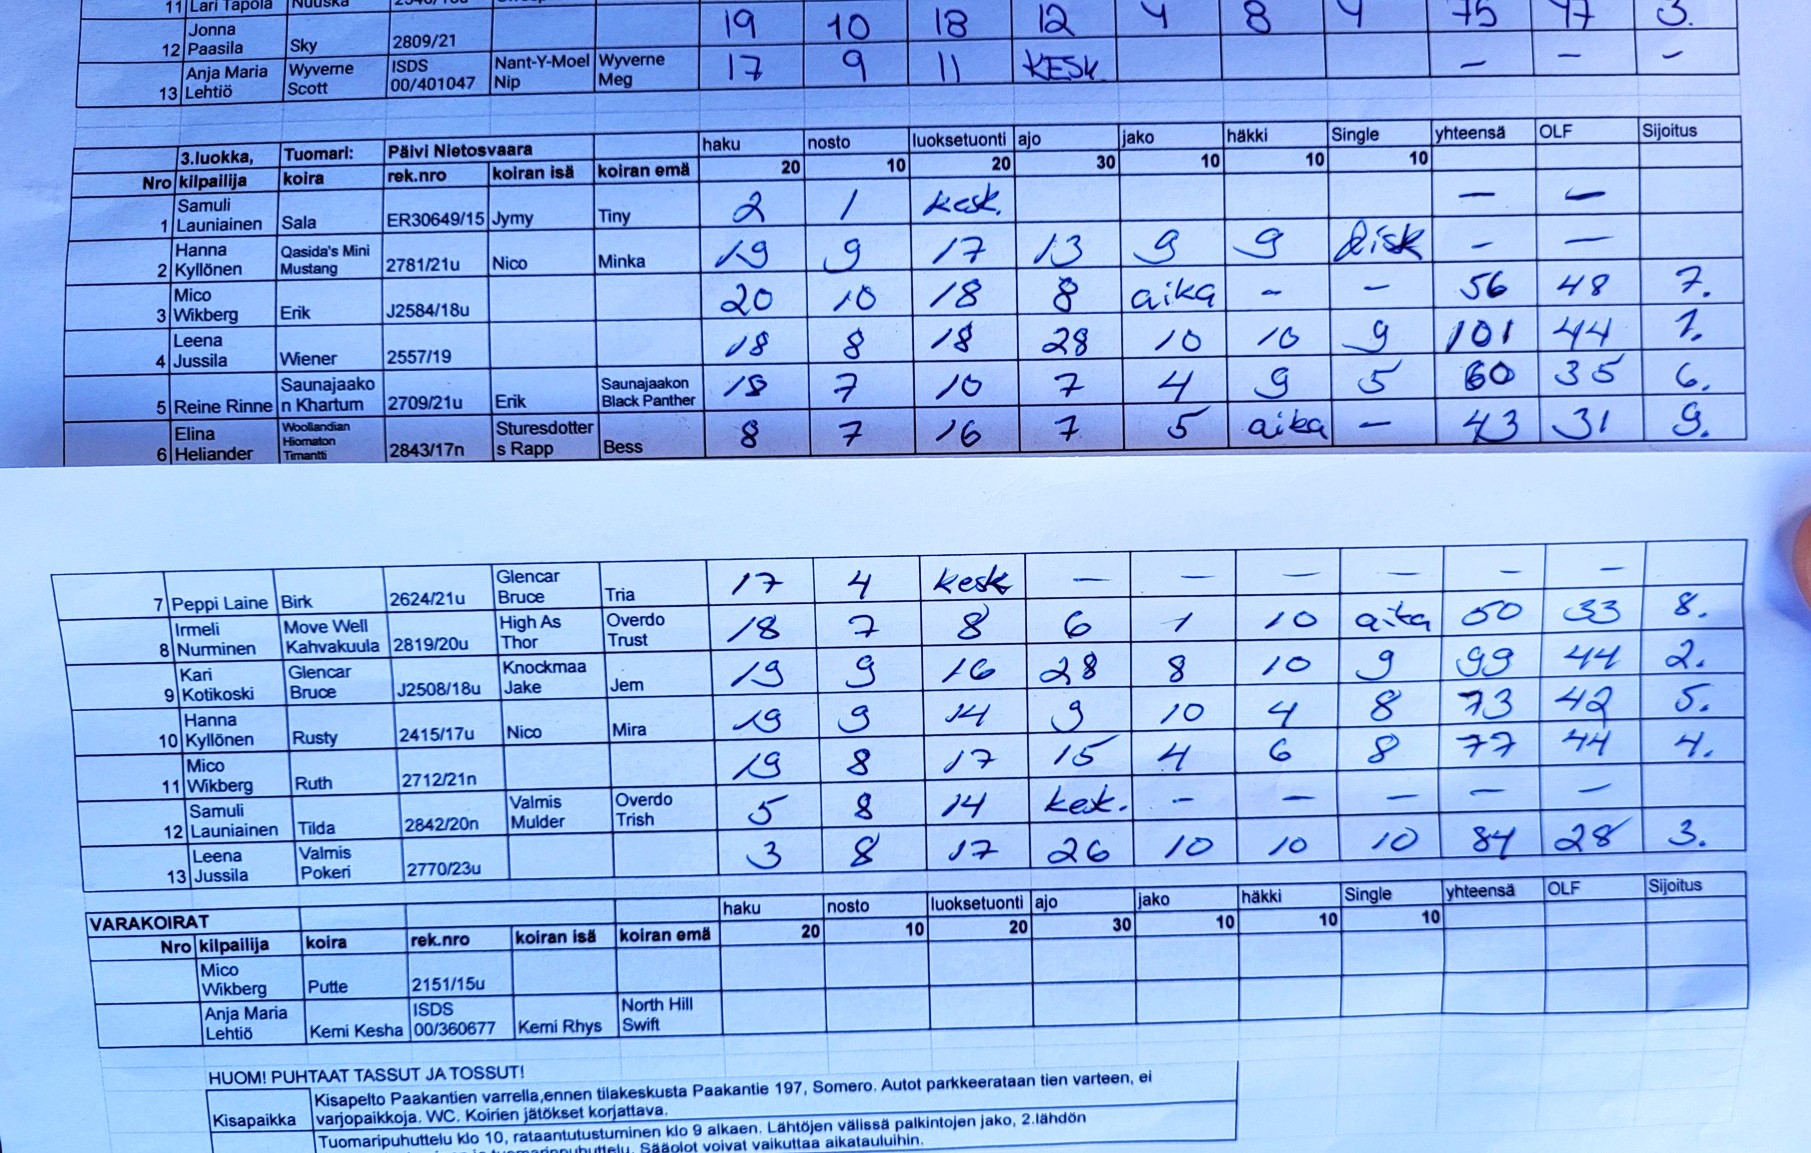 11 Lari Tapola Nuuska
Jonna
12 Paasila Sky 2809/21 19 10 18 12 4 8 4 75 47 3.
Anja Maria Wyverne ISDS Nant-Y-Moel Wyverne
13 Lehtiö Scott 00/401047 Nip Meg 17 9 11 KESK – – –
3.luokka, Tuomari: Päivi Nietosvaara haku nosto luoksetuonti ajo jako häkki Single yhteensä OLF Sijoitus
20 10 20 30 10 10 10
Nro kilpailija koira rek.nro koiran isä koiran emä
Samuli
1 Launiainen Sala ER30649/15 Jymy Tiny 2 1 kesk. – –
Hanna Qasida's Mini
2 Kyllönen Mustang 2781/21u Nico Minka 19 9 17 13 9 9 disk – –
Mico
3 Wikberg Erik J2584/18u 20 10 18 8 aika – – 56 48 7.
Leena
4 Jussila Wiener 2557/19 18 8 18 28 10 10 9 101 44 1.
Saunajaako Saunajaakon
5 Reine Rinne n Khartum 2709/21u Erik Black Panther 18 7 10 7 4 9 5 60 35 6.
Elina Woollandian Sturesdotter
Hiomaton
6 Heliander Timantti 2843/17n s Rapp Bess 8 7 16 7 5 aika – 43 31 9.
Glencar
7 Peppi Laine Birk 2624/21u Bruce Tria 17 4 kesk – – – – – –
Irmeli Move Well High As Overdo
8 Nurminen Kahvakuula 2819/20u Thor Trust 18 7 8 6 1 10 aika 50 33 8.
Kari Glencar Knockmaa
9 Kotikoski Bruce J2508/18u Jake Jem 19 9 16 28 8 10 9 99 44 2.
Hanna
10 Kyllönen Rusty 2415/17u Nico Mira 19 9 14 9 10 4 8 73 42 5.
Mico
11 Wikberg Ruth 2712/21n 19 8 17 15 4 6 8 77 44 4.
Samuli Valmis Overdo
12 Launiainen Tilda 2842/20n Mulder Trish 5 8 14 kesk. – – – – –
Leena Valmis
13 Jussila Pokeri 2770/23u 3 8 17 26 10 10 10 84 28 3.
VARAKOIRAT haku nosto luoksetuonti ajo jako häkki Single yhteensä OLF Sijoitus
Nro kilpailija koira rek.nro koiran isä koiran emä 20 10 20 30 10 10 10
Mico
Wikberg Putte 2151/15u
Anja Maria ISDS North Hill
Lehtiö Kemi Kesha 00/360677 Kemi Rhys Swift
HUOM! PUHTAAT TASSUT JA TOSSUT!
Kisapaikka Kisapelto Paakantien varrella,ennen tilakeskusta Paakantie 197, Somero. Autot parkkeerataan tien varteen, ei
varjopaikkoja. WC. Koirien jätökset korjattava.
Tuomaripuhuttelu klo 10, rataantutustuminen klo 9 alkaen. Lähtöjen välissä palkintojen jako, 2.lähdön
tuomaripuhuttelu. Sääolot voivat vaikuttaa aikatauluihin.